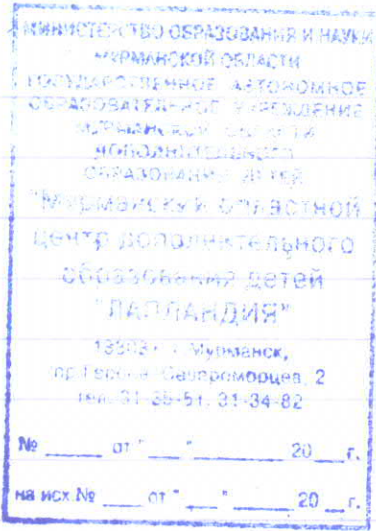 МИНИСТЕРСТВО ОБРАЗОВАНИЯ И НАУКИ
МУРМАНСКОЙ ОБЛАСТИ
ГОСУДАРСТВЕННОЕ АВТОНОМНОЕ
ОБРАЗОВАТЕЛЬНОЕ УЧРЕЖДЕНИЕ
МУРМАНСКОЙ ОБЛАСТИ
ДОПОЛНИТЕЛЬНОГО
ОБРАЗОВАНИЯ ДЕТЕЙ
"МУРМАНСКИЙ ОБЛАСТНОЙ
ЦЕНТР ДОПОЛНИТЕЛЬНОГО
ОБРАЗОВАНИЯ ДЕТЕЙ
"ЛАПЛАНДИЯ"
г. Мурманск,
пр.Героев Североморцев, 2
тел. 31-34-82
№ ____ от "___" ________ 20 __г.
на исх.№ ____ от "___" ________ 20 __г.